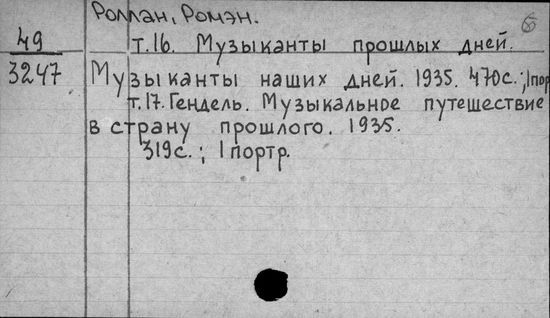 Роллан, Ромэн.
49
3247
т.16. Музыканты прошлых дней.
Музыканты наших дней. 1935. 470с.; 1 порт
т.17. Гендель. Музыкальное путешествие
в страну прошлого. 1935.
319с.; 1 портр.